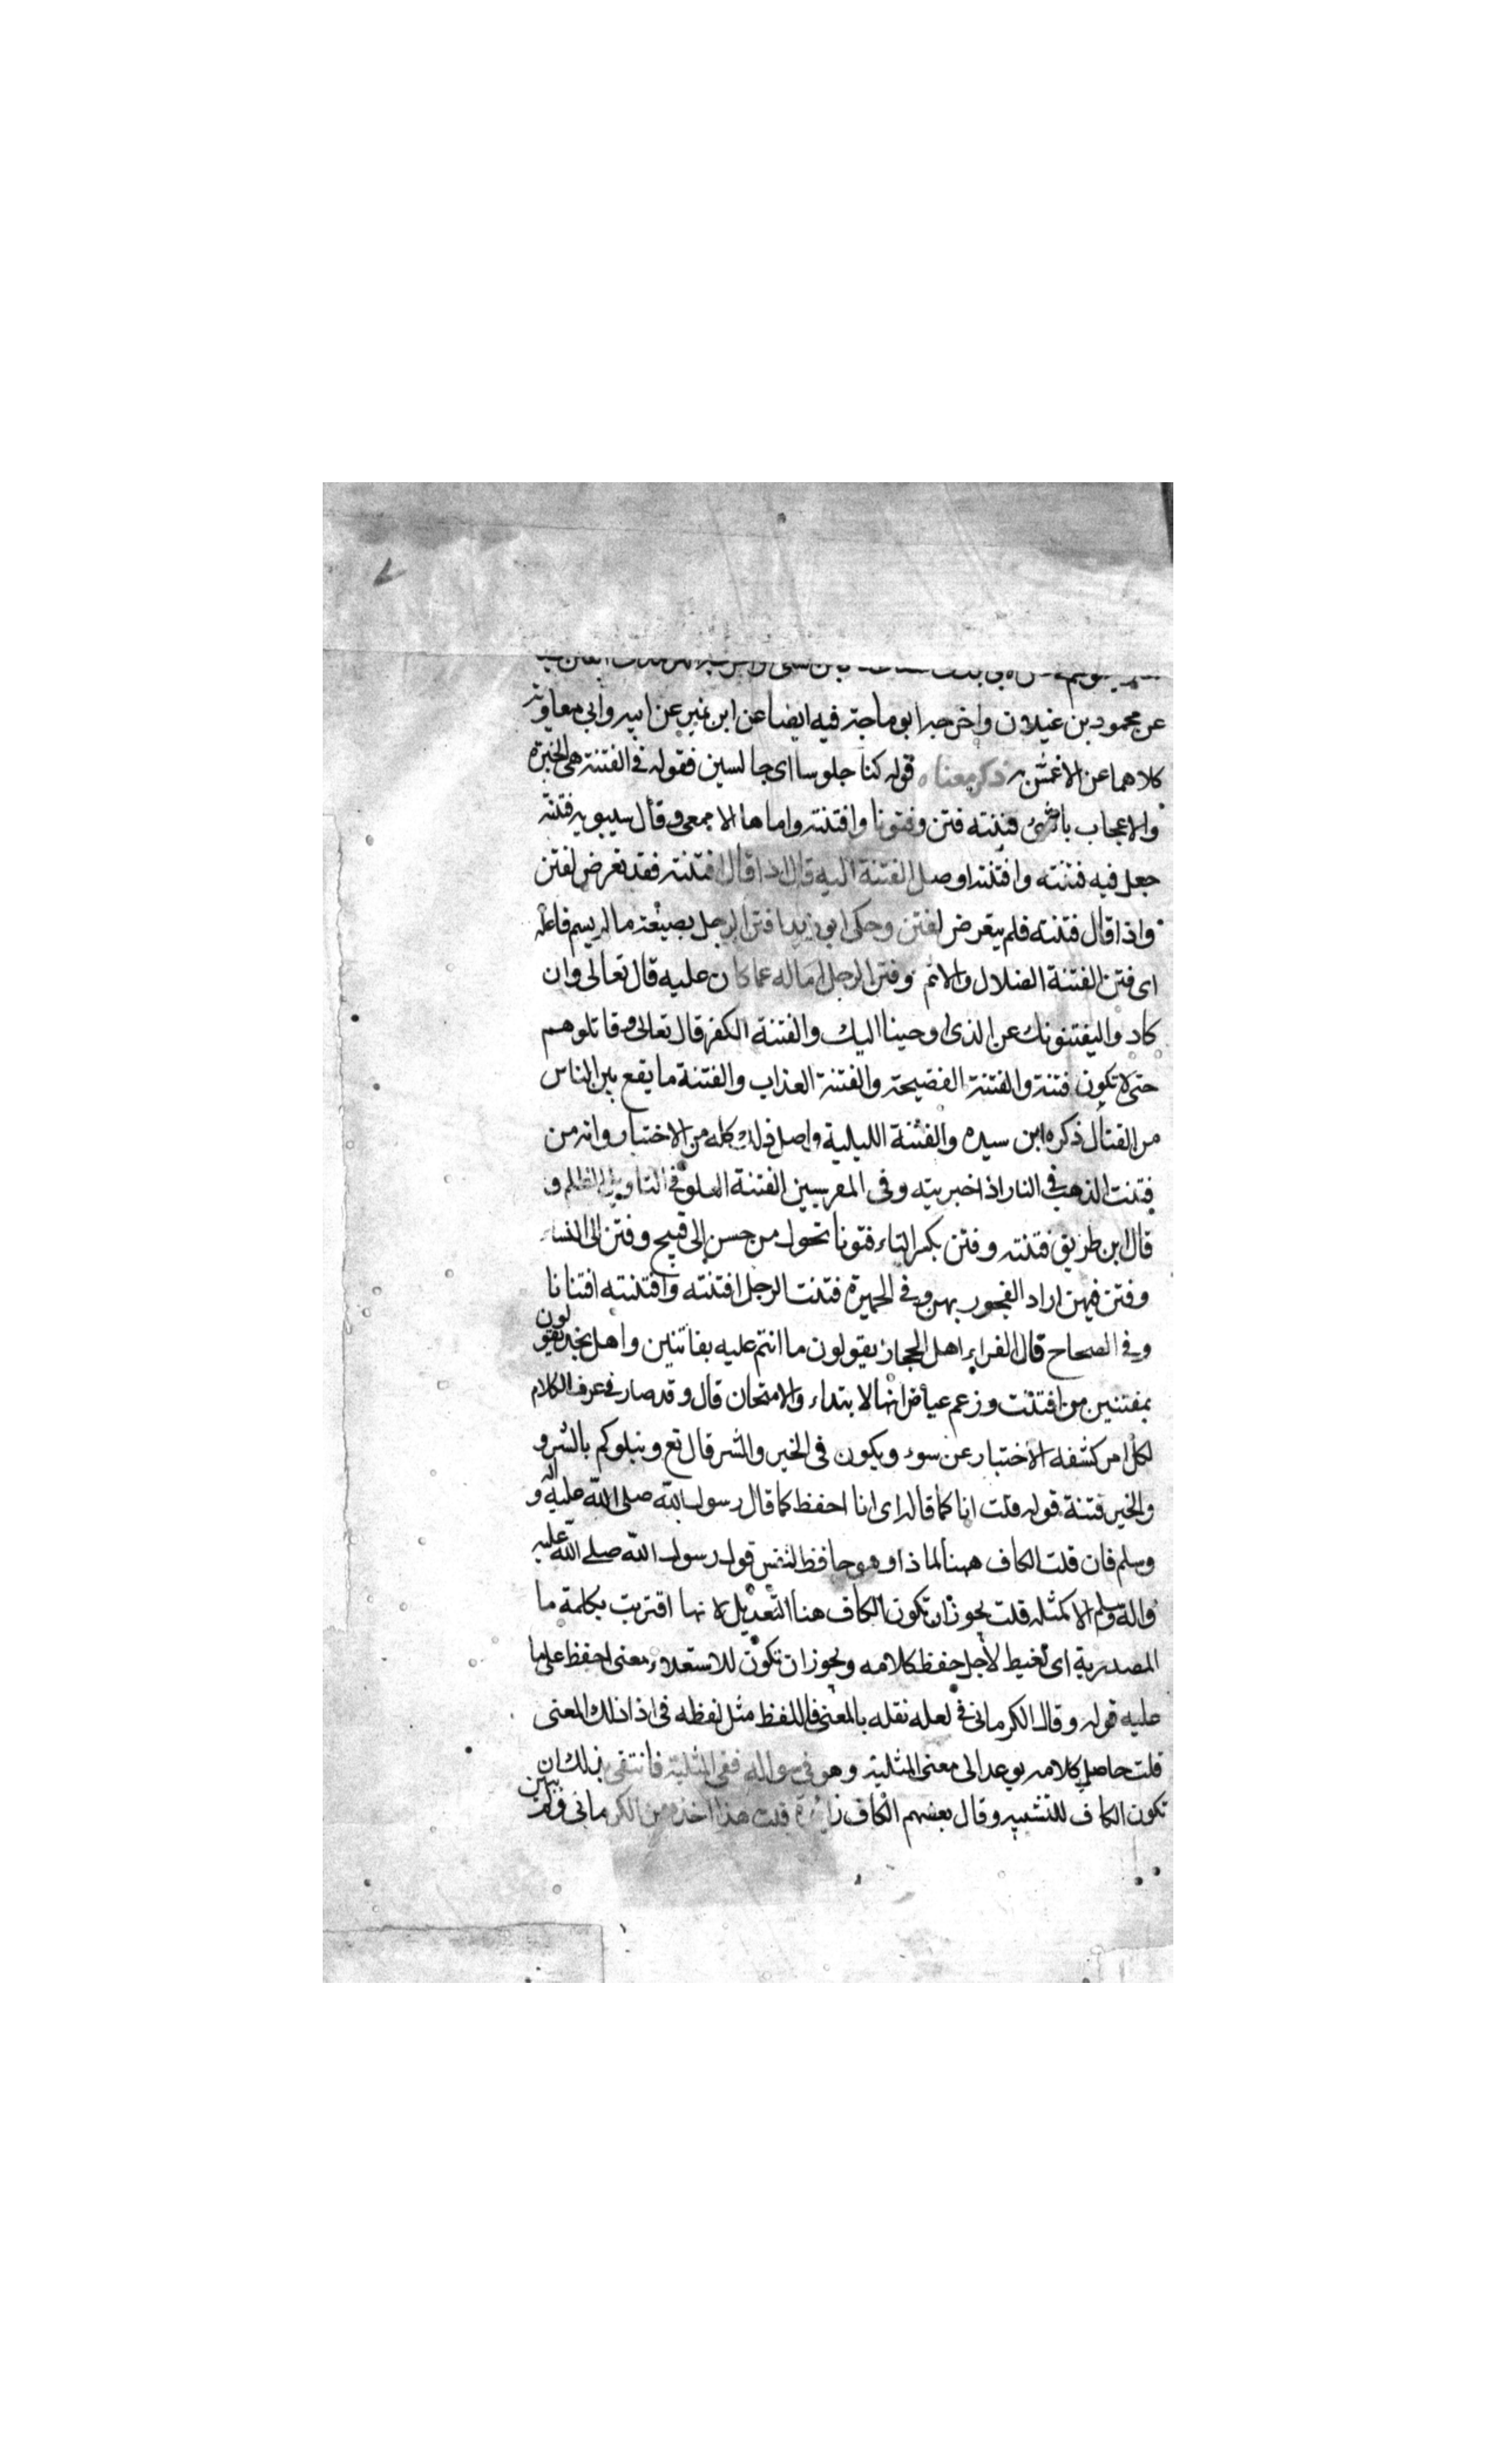 عن محمود بن غيلان واخرجه ابو ماجة فيه ايضا عن ابن نمير عن ابيه وابي معاوية
كلاهما عن الاعمش ذكر معناه قوله كنا جلوسا اى جالسين فقوله فى الفتنة هى الخبرة
والاعجاب بالشئ فتنته فتن وفتونا وافتنته واما ها الاصمعى وقال سيبويه فتنته
جعل فيه فتنته وافتنته اوصل الفتنة اليه قال اذا قال افتنته فقد تعرض لفتن
واذا قال فتنته فلم يتعرض لفتن وحكى ابو زيد افتن الرجل بصيغة ما لم يسم فاعله
اى فتن الفتنة الضلال والاثم وفتن الرجل اماله عما كان عليه قال تعالى وان
كادوا ليفتنونك عن الذى اوحينا اليك والفتنة الكفر قال تعالى وقاتلوهم
حتى لا تكون فتنة والفتنة الفضيحة والفتنة العذاب والفتنة ما يقع بين الناس
من القتال ذكره ابن سيده والفتنة الليلية واصل ذلك كله من الاختبار وانه من
فتنت الذهب فى النار اذا اخبربته وفى المغربيين الفتنة الغلو فى التاويل الظلم و
قال ابن طريق فتنته وفتن بكسر التاء فتونا تحول من حسن الى قبيح وفتن الى النساء
وفتن فيهن اراد الفجور بهن وفى الجمهرة فتنت الرجل افتنه وافتنته افتنانا
وفى الصحاح قال الفراء اهل الحجاز يقولون ما انتم عليه بفاتنين واهل نجد يقولون
بمفتنين من افتنت وزعم عياض انها الابتداء والامتحان قال وقد صار فى عرف الكلام
لكل امر كشفه الاختبار عن سوء ويكون فى الخير والشر قال تع ونبلوكم بالشر و
والخير فتنة قوله قلت انا كما قاله اى انا احفظ كما قال رسول الله صلى الله عليه واله و
وسلم فان قلت الكاف ههنا لماذا وهو حافظ لنفس قول رسول الله صلى الله عليه
واله وسلم لا كمثله قلت يجوز ان تكون الكاف هنا التعديل لانها اقتربت بكلمة ما
المصدرية اى لاجل حفظ كلامه ويجوز ان تكون للاستعلاء بمعنى احفظ على ما
عليه قوله وقال الكرمانى فى لعله نقله بالمعنى فاللفظ مثل لفظه فى اذا ذلك المعنى
قلت حاصل كلامه يوعد الى معنى المثلية وهو فى سواله نفى المثلية فانتفى بذلك ان
تكون الكاف للتشبيه وقال بعضهم الكاف زائدة قلت هذا اخذه من الكرمانى ولم يبين